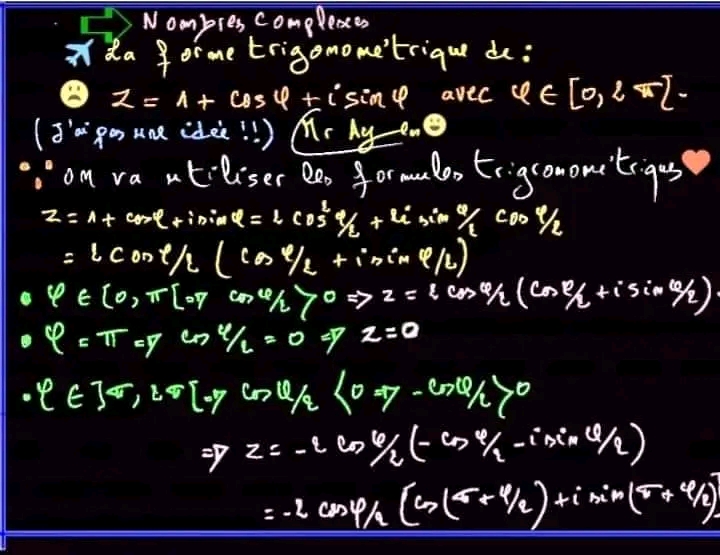 Nombres complexes
La forme trigonométrique de :
z = 1 + cosφ + i sinφ avec φ ∈ [0, 2π[.
(J'ai pas une idée !!) Mr Ay en
on va utiliser les formules trigronométriques
z = 1 + cosφ + i sinφ = 2 cos²φ/2 + 2i sin φ/2 cos φ/2
= 2 cos φ/2 (cos φ/2 + i sin φ/2)
• φ ∈ [0, π[ ⇒ cos φ/2 > 0 ⇒ z = 2 cos φ/2 (cos φ/2 + i sin φ/2).
• φ = π ⇒ cos φ/2 = 0 ⇒ z = 0
• φ ∈ ]π, 2π[ ⇒ cos φ/2 < 0 ⇒ - cos φ/2 > 0
⇒ z = -2 cos φ/2 (- cos φ/2 - i sin φ/2)
= -2 cos φ/2 [cos(π + φ/2) + i sin(π + φ/2)]